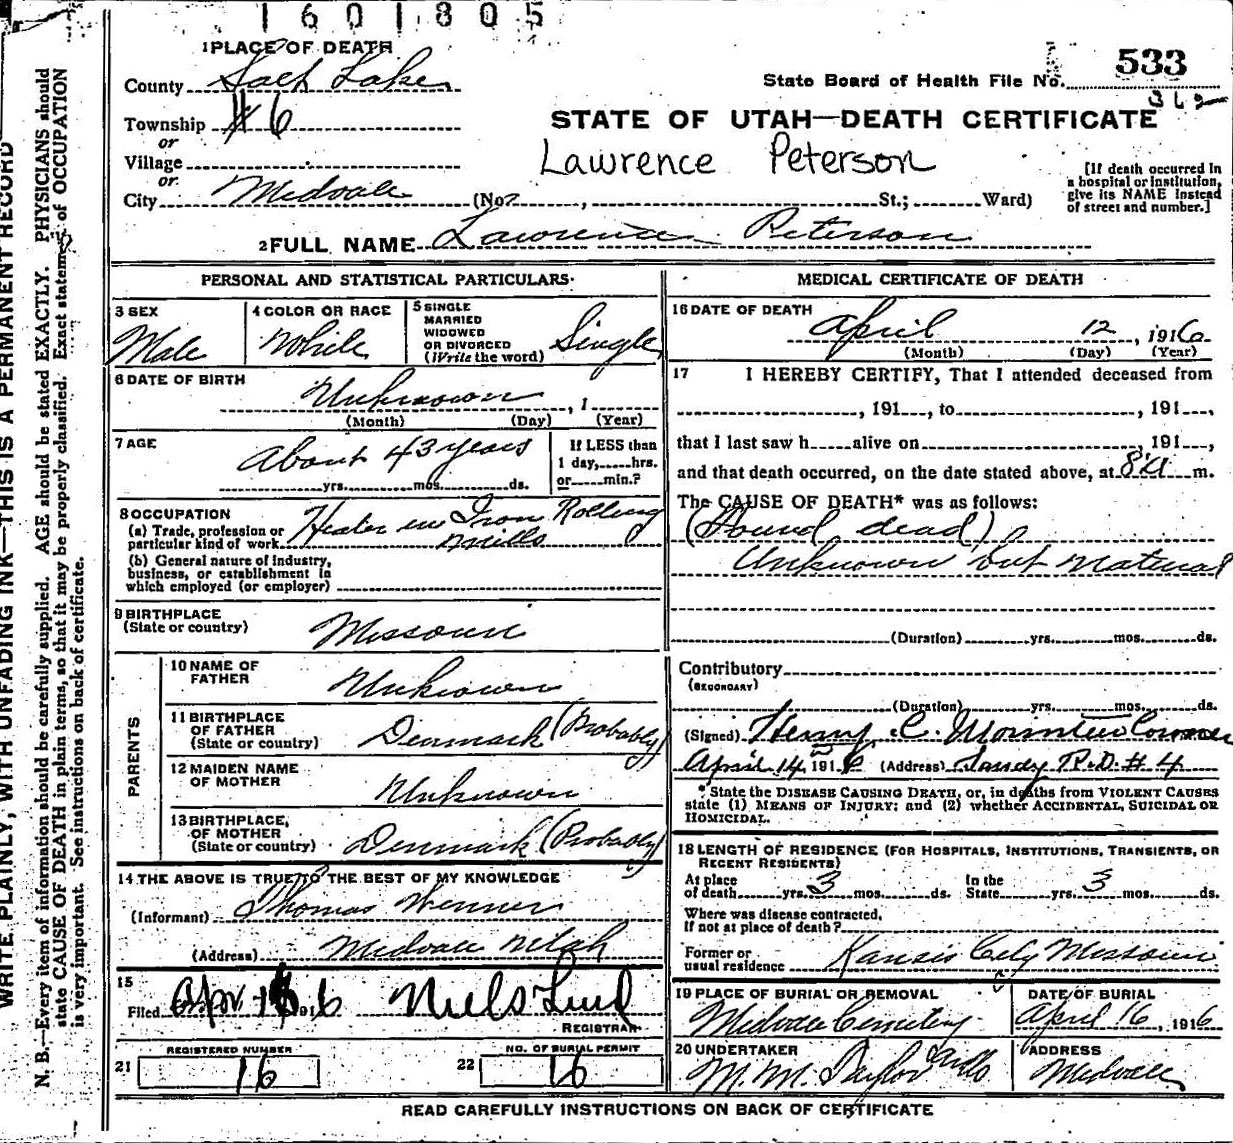 1601805
1 PLACE OF DEATH
County Salt Lake
Township # 6
or
Village
or
City Midvale (No. , St.; Ward)
State Board of Health File No. 533
362
STATE OF UTAH—DEATH CERTIFICATE
Lawrence Peterson
[If death occurred in
a hospital or institution,
give its NAME instead
of street and number.]
2 FULL NAME Lawrence Peterson
PERSONAL AND STATISTICAL PARTICULARS
3 SEX
Male
4 COLOR OR RACE
White
5 SINGLE
MARRIED
WIDOWED
OR DIVORCED
(Write the word)
Single
6 DATE OF BIRTH
Unknown , 1
(Month) (Day) (Year)
7 AGE
About 43 years
yrs. mos. ds.
If LESS than
1 day, hrs.
or min.?
8 OCCUPATION
(a) Trade, profession or
particular kind of work Heater in Iron Rolling
Mills
(b) General nature of industry,
business, or establishment in
which employed (or employer)
9 BIRTHPLACE
(State or country)
Missouri
PARENTS
10 NAME OF
FATHER
Unknown
11 BIRTHPLACE
OF FATHER
(State or country)
Denmark (Probably)
12 MAIDEN NAME
OF MOTHER
Unknown
13 BIRTHPLACE
OF MOTHER
(State or country)
Denmark (Probably)
14 THE ABOVE IS TRUE TO THE BEST OF MY KNOWLEDGE
(Informant) Thomas
(Address) Midvale Utah
15
Filed Apr 1916 Niels Lind
REGISTRAR
21
REGISTERED NUMBER
16
22
NO. OF BURIAL PERMIT
16
MEDICAL CERTIFICATE OF DEATH
16 DATE OF DEATH
April 12 , 1916
(Month) (Day) (Year)
17 I HEREBY CERTIFY, That I attended deceased from
, 191 , to , 191 ,
that I last saw h alive on , 191 ,
and that death occurred, on the date stated above, at 8 a m.
The CAUSE OF DEATH* was as follows:
(Found dead)
Unknown but natural
(Duration) yrs. mos. ds.
Contributory
(SECONDARY)
(Duration) yrs. mos. ds.
(Signed) Henry C. Mounteer Coroner
April 14, 1916 (Address) Sandy R.D. # 4
* State the DISEASE CAUSING DEATH, or, in deaths from VIOLENT CAUSES
state (1) MEANS OF INJURY; and (2) whether ACCIDENTAL, SUICIDAL OR
HOMICIDAL.
18 LENGTH OF RESIDENCE (FOR HOSPITALS, INSTITUTIONS, TRANSIENTS, OR
RECENT RESIDENTS)
At place
of death yrs. 3 mos. ds.
In the
State yrs. 3 mos. ds.
Where was disease contracted,
If not at place of death?
Former or
usual residence Kansis City Missouri
19 PLACE OF BURIAL OR REMOVAL
Midvale Cemetery
DATE OF BURIAL
April 16, 1916
20 UNDERTAKER
M. M. Taylor
ADDRESS
Midvale
READ CAREFULLY INSTRUCTIONS ON BACK OF CERTIFICATE
WRITE PLAINLY, WITH UNFADING INK—THIS IS A PERMANENT RECORD
N. B.—Every item of information should be carefully supplied. AGE should be stated EXACTLY. PHYSICIANS should
state CAUSE OF DEATH in plain terms, so that it may be properly classified. Exact statement of OCCUPATION
is very important. See instructions on back of certificate.